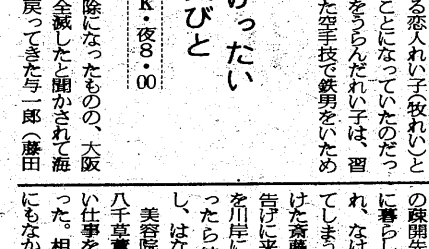 る恋人れい子(牧れい)と
ことになっていたのだっ
をうらんだれい子は、習
た空手技で鉄男をいため
ったい
びと
K・夜8・00
除になったものの、大阪
全滅したと聞かされて海
戻ってきた与一郎(藤田
の疎開先
に暮らし
れ、なけ
てしまう
けた斎藤
告げに来
を川岸に
ったら
し、はな
美容院
八千草薫
い仕事を
った。相
にもなか